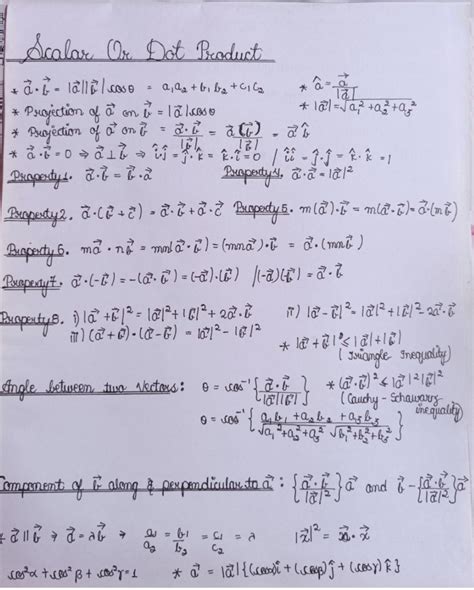 Scalar Or Dot Product
* a⃗·b⃗ = |a⃗||b⃗|cosθ = a₁a₂ + b₁b₂ + c₁c₂    * â = a⃗/|a⃗|
* Projection of a⃗ on b⃗ = |a⃗|cosθ    * |a⃗| = √(a₁² + a₂² + a₃²)
* Projection of a⃗ on b⃗ = (a⃗·b⃗)/|b⃗| = a⃗(b⃗)/|b⃗| = a⃗·b̂
* a⃗·b⃗ = 0 ⇒ a⃗ ⊥ b⃗ ⇒ î·ĵ = ĵ·k̂ = k̂·î = 0 / î·î = ĵ·ĵ = k̂·k̂ = 1
Property 1. a⃗·b⃗ = b⃗·a⃗    Property 4. a⃗·a⃗ = |a⃗|²
Property 2. a⃗·(b⃗ + c⃗) = a⃗·b⃗ + a⃗·c⃗    Property 5. m(a⃗)·b⃗ = m(a⃗·b⃗) = a⃗·(mb⃗)
Property 6. ma⃗ · nb⃗ = mn(a⃗·b⃗) = (mna⃗)·b⃗ = a⃗·(mnb⃗)
Property 7. a⃗·(-b⃗) = -(a⃗·b⃗) = (-a⃗)·(b⃗) /(-a⃗)(-b⃗) = a⃗·b⃗
Property 8. i) |a⃗ + b⃗|² = |a⃗|² + |b⃗|² + 2a⃗·b⃗    ii) |a⃗ - b⃗|² = |a⃗|² + |b⃗|² - 2a⃗·b⃗
iii) (a⃗ + b⃗)·(a⃗ - b⃗) = |a⃗|² - |b⃗|²    * |a⃗ + b⃗| ≤ |a⃗| + |b⃗|
(Triangle Inequality)
Angle between two Vectors: θ = cos⁻¹{a⃗·b⃗/|a⃗||b⃗|}    * (a⃗·b⃗)² ≤ |a⃗|²|b⃗|²
(Cauchy - Schawarz inequality)
θ = cos⁻¹{(a₁b₁ + a₂b₂ + a₃b₃)/(√(a₁² + a₂² + a₃²) √(b₁² + b₂² + b₃²))}
Component of b⃗ along & perpendicular to a⃗: {a⃗·b⃗/|a⃗|²}a⃗ and b⃗ - {a⃗·b⃗/|a⃗|²}a⃗
* a⃗ || b⃗ ⇒ a⃗ = λb⃗ ⇒ a₁/a₂ = b₁/b₂ = c₁/c₂ = λ    |x⃗|² = x⃗·x⃗
cos²α + cos²β + cos²γ = 1    * a⃗ = |a⃗|{(cosα)î + (cosβ)ĵ + (cosγ)k̂}